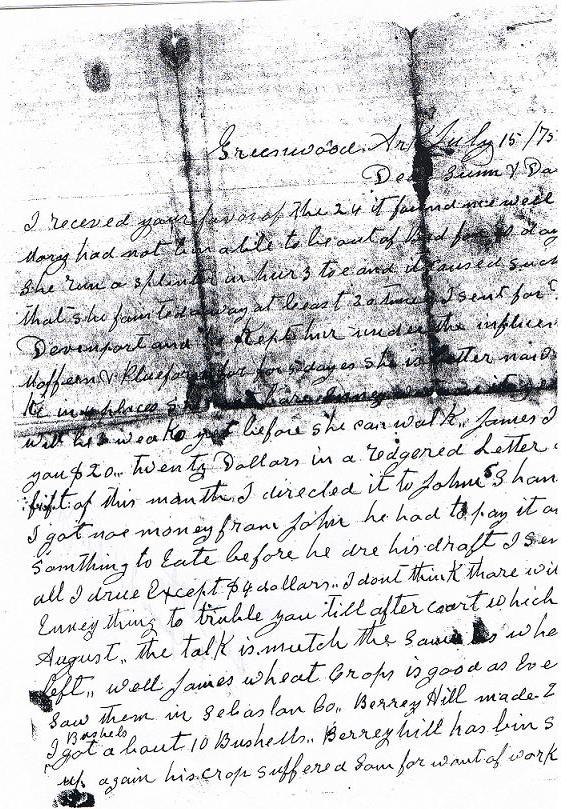 Greenwood. Ark July 15 /75
Dear Sunn & Da
I receved your favor of the 24 it found me well
Mary had not bin abile to be out of bed for 10 day
She run a splenter in hur 3 toe and it caused such
that she fainted away at least 20 times I sent for
Devenport and he Kept hur under the influen
Moffeen & Kluefor for 5 dayes she is better now
Ke in places
will be a weake yet before she can walk.. James I
you $20.. twenty Dollars in a redgered Letter
fift of this manth I directed it to Johns Shan
I got noe money from John he had to pay it ou
Somthing to Eate before he dre his draft I sen
all I drue Except $4 dollars.. I dont think thare wil
Enney thing to truble you till after coart which
August.. the talk is mutch the Same as whe
left.. well James wheat Crops is good as Eve
Saw them in Sebastan Co.. Berrey Hill made 2
Bushels
I got a bout 10 Bushells.. Berreyhill has bin s
up again his crop suffered Som for want of work